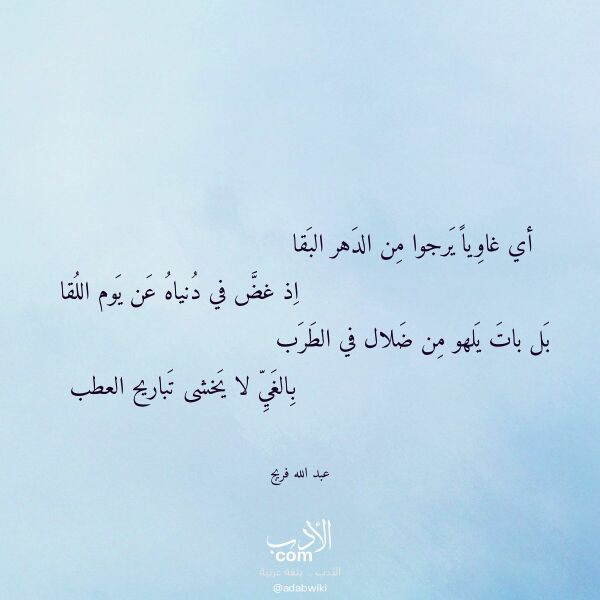 أي غاوِياً يَرجوا مِن الدَهر البَقا
إِذ غضَّ في دُنياهُ عَن يَوم اللُقا
بَل باتَ يَلهو مِن ضَلال في الطَرَب
بِالغَيِّ لا يَخشى تَباريح العطب
عبد الله فريج
الأدب
com
الأدب .. بلغة عربية
@adabwiki